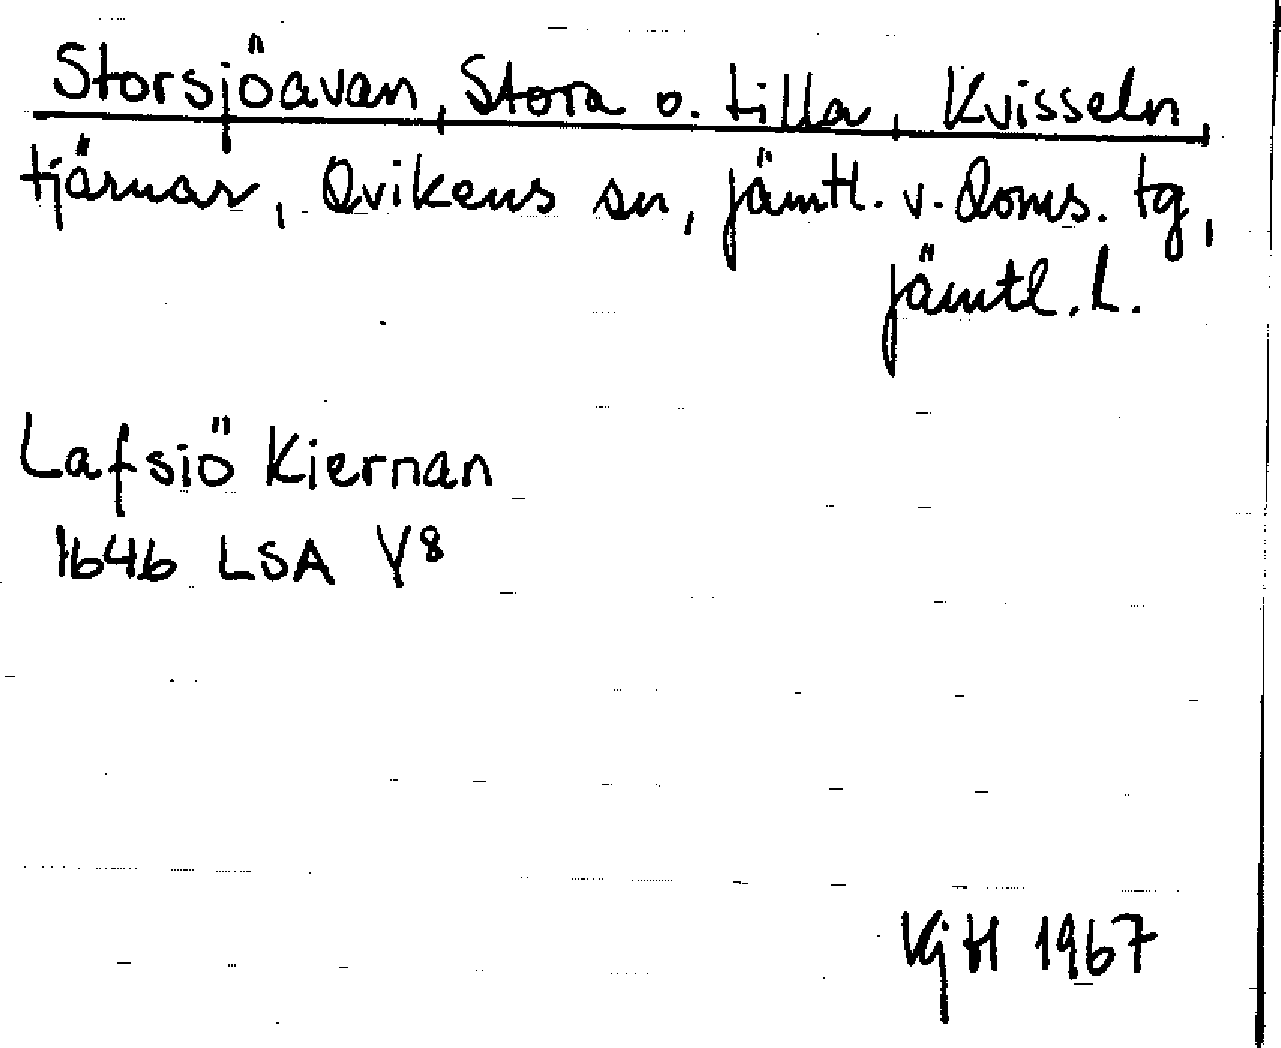 Storsjöavan, Stora o. Lilla, Kvisseln,
tjärnar, Qvikens sn, Jämtl. v. Doms. tg,
Jämtl. L.
Lafsiö Kiernan
1646 LSA Y8
KjH 1967